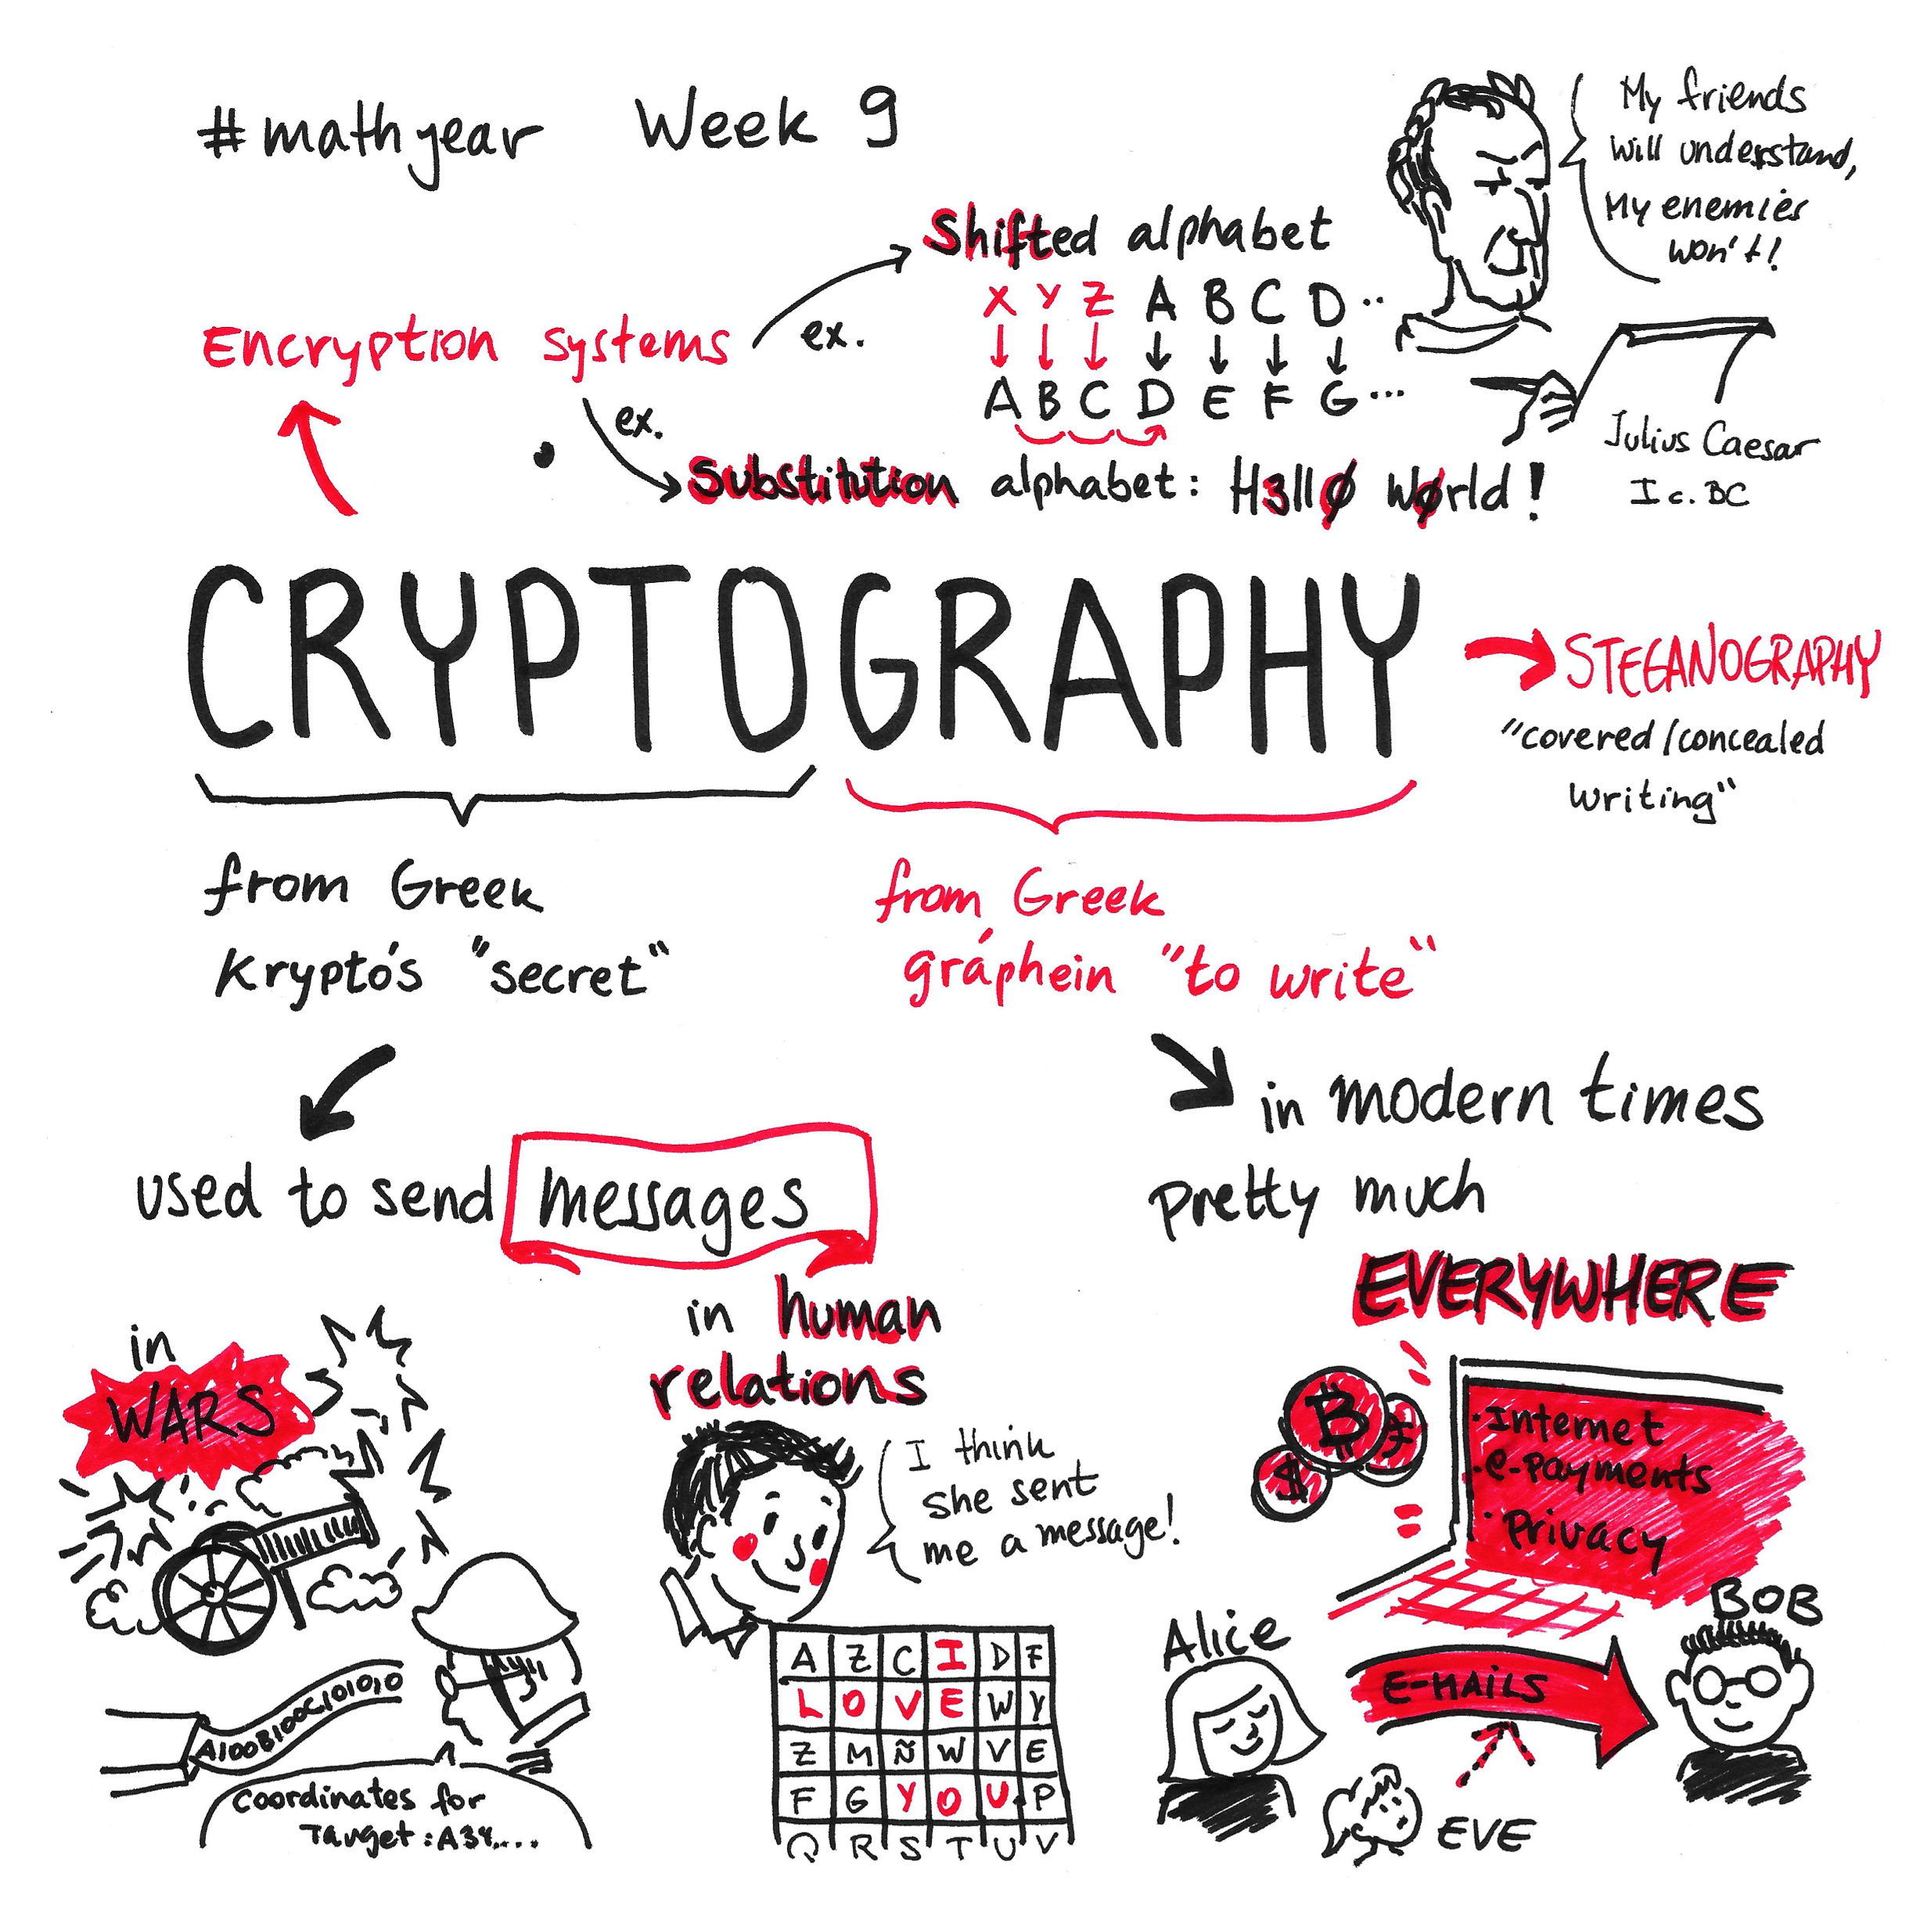 #mathyear Week 9
My friends
will understand,
My enemies
won't!
Shifted alphabet
X Y Z A B C D ..
A B C D E F G ...
Encryption systems
ex.
ex.
Julius Caesar
I c. BC
Substitution alphabet: H3llø Wørld!
CRYPTOGRAPHY
STEGANOGRAPHY
"covered/concealed
writing"
from Greek
Kryptós "secret"
from Greek
gráphein "to write"
used to send messages
in modern times
pretty much
EVERYWHERE
in
WARS
in human
relations
I think
she sent
me a message!
B
$
· Internet
· e-payments
· Privacy
A100B100C101010
Coordinates for
Target: A34....
A Z C I D F
L O V E W Y
Z M Ñ W V E
F G Y O U P
Q R S T U V
Alice
E-MAILS
BOB
EVE